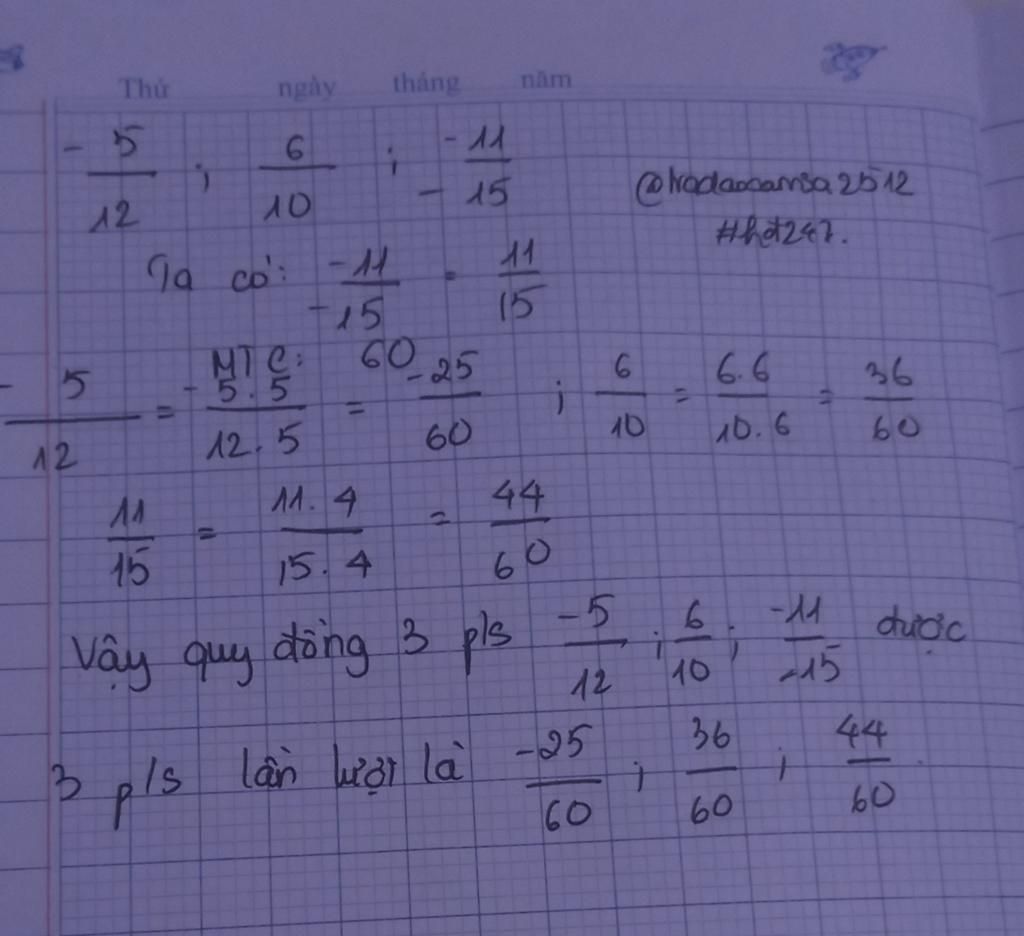 Thứ ngày tháng năm
-5/12 ; 6/10 ; -11/-15
#hd247.
Ta có: -11/-15 = 11/15
MTC: 60
-5/12 = -5.5/12.5 = -25/60 ; 6/10 = 6.6/10.6 = 36/60
11/15 = 11.4/15.4 = 44/60
Vậy quy đồng 3 p/s -5/12 ; 6/10 ; -11/-15 được
3 p/s lần lượt là -25/60 ; 36/60 ; 44/60.